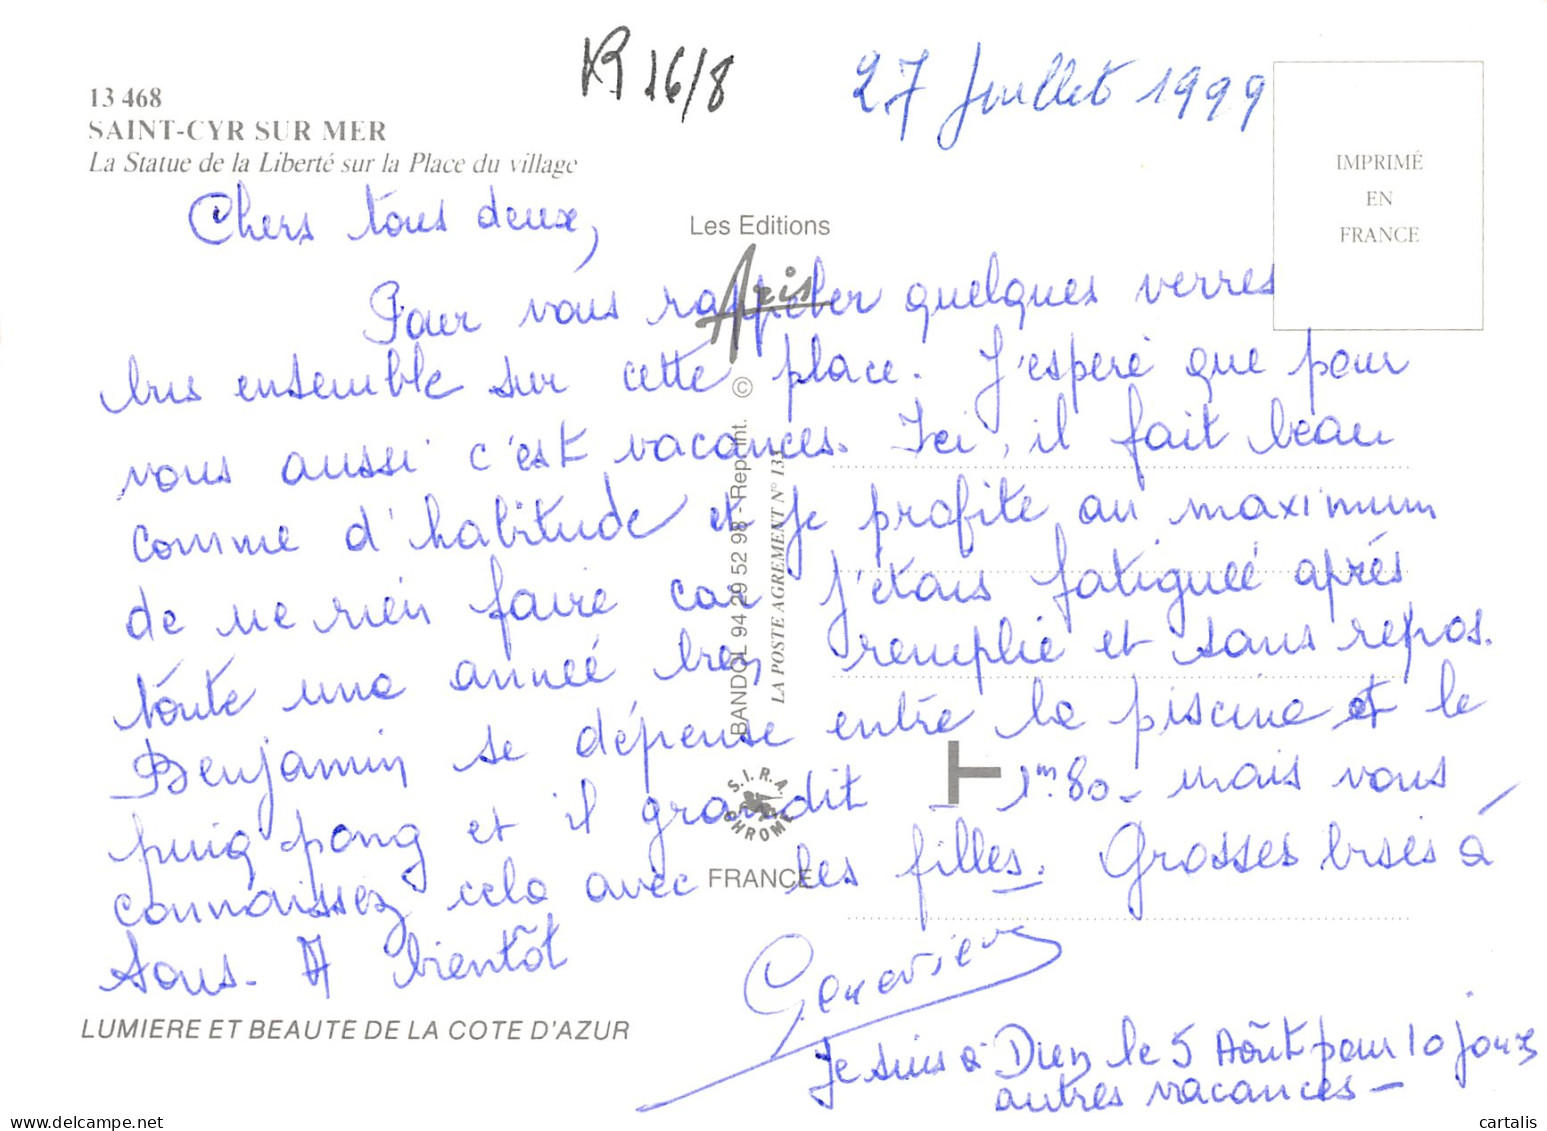 R 16/8
27 Juillet 1999
13 468
SAINT-CYR SUR MER
La Statue de la Liberté sur la Place du village
IMPRIMÉ
EN
FRANCE
Chers tous deux,
Les Editions
Aris
Pour vous rappeler quelques verres
bus ensemble sur cette place. J'espère que pour
vous aussi c'est vacances. Ici, il fait beau
comme d'habitude et je profite au maximum
de ne rien faire car j'étais fatiguée après
toute une année bien remplie et sans repos.
Benjamin se dépense entre la piscine et le
ping-pong et il grandit _ 1m80 - mais vous
connaissez cela avec les filles. Grosses bises à
tous. A bientôt
Geneviève
Je suis à le 5 Août pour 10 jours
autres vacances -
BANDOL 94 29 52 98 - Rep. Int. ©
LA POSTE AGREMENT N° 133
S.I.R.A.
CHROME
FRANCE
LUMIERE ET BEAUTE DE LA COTE D'AZUR
cartalis